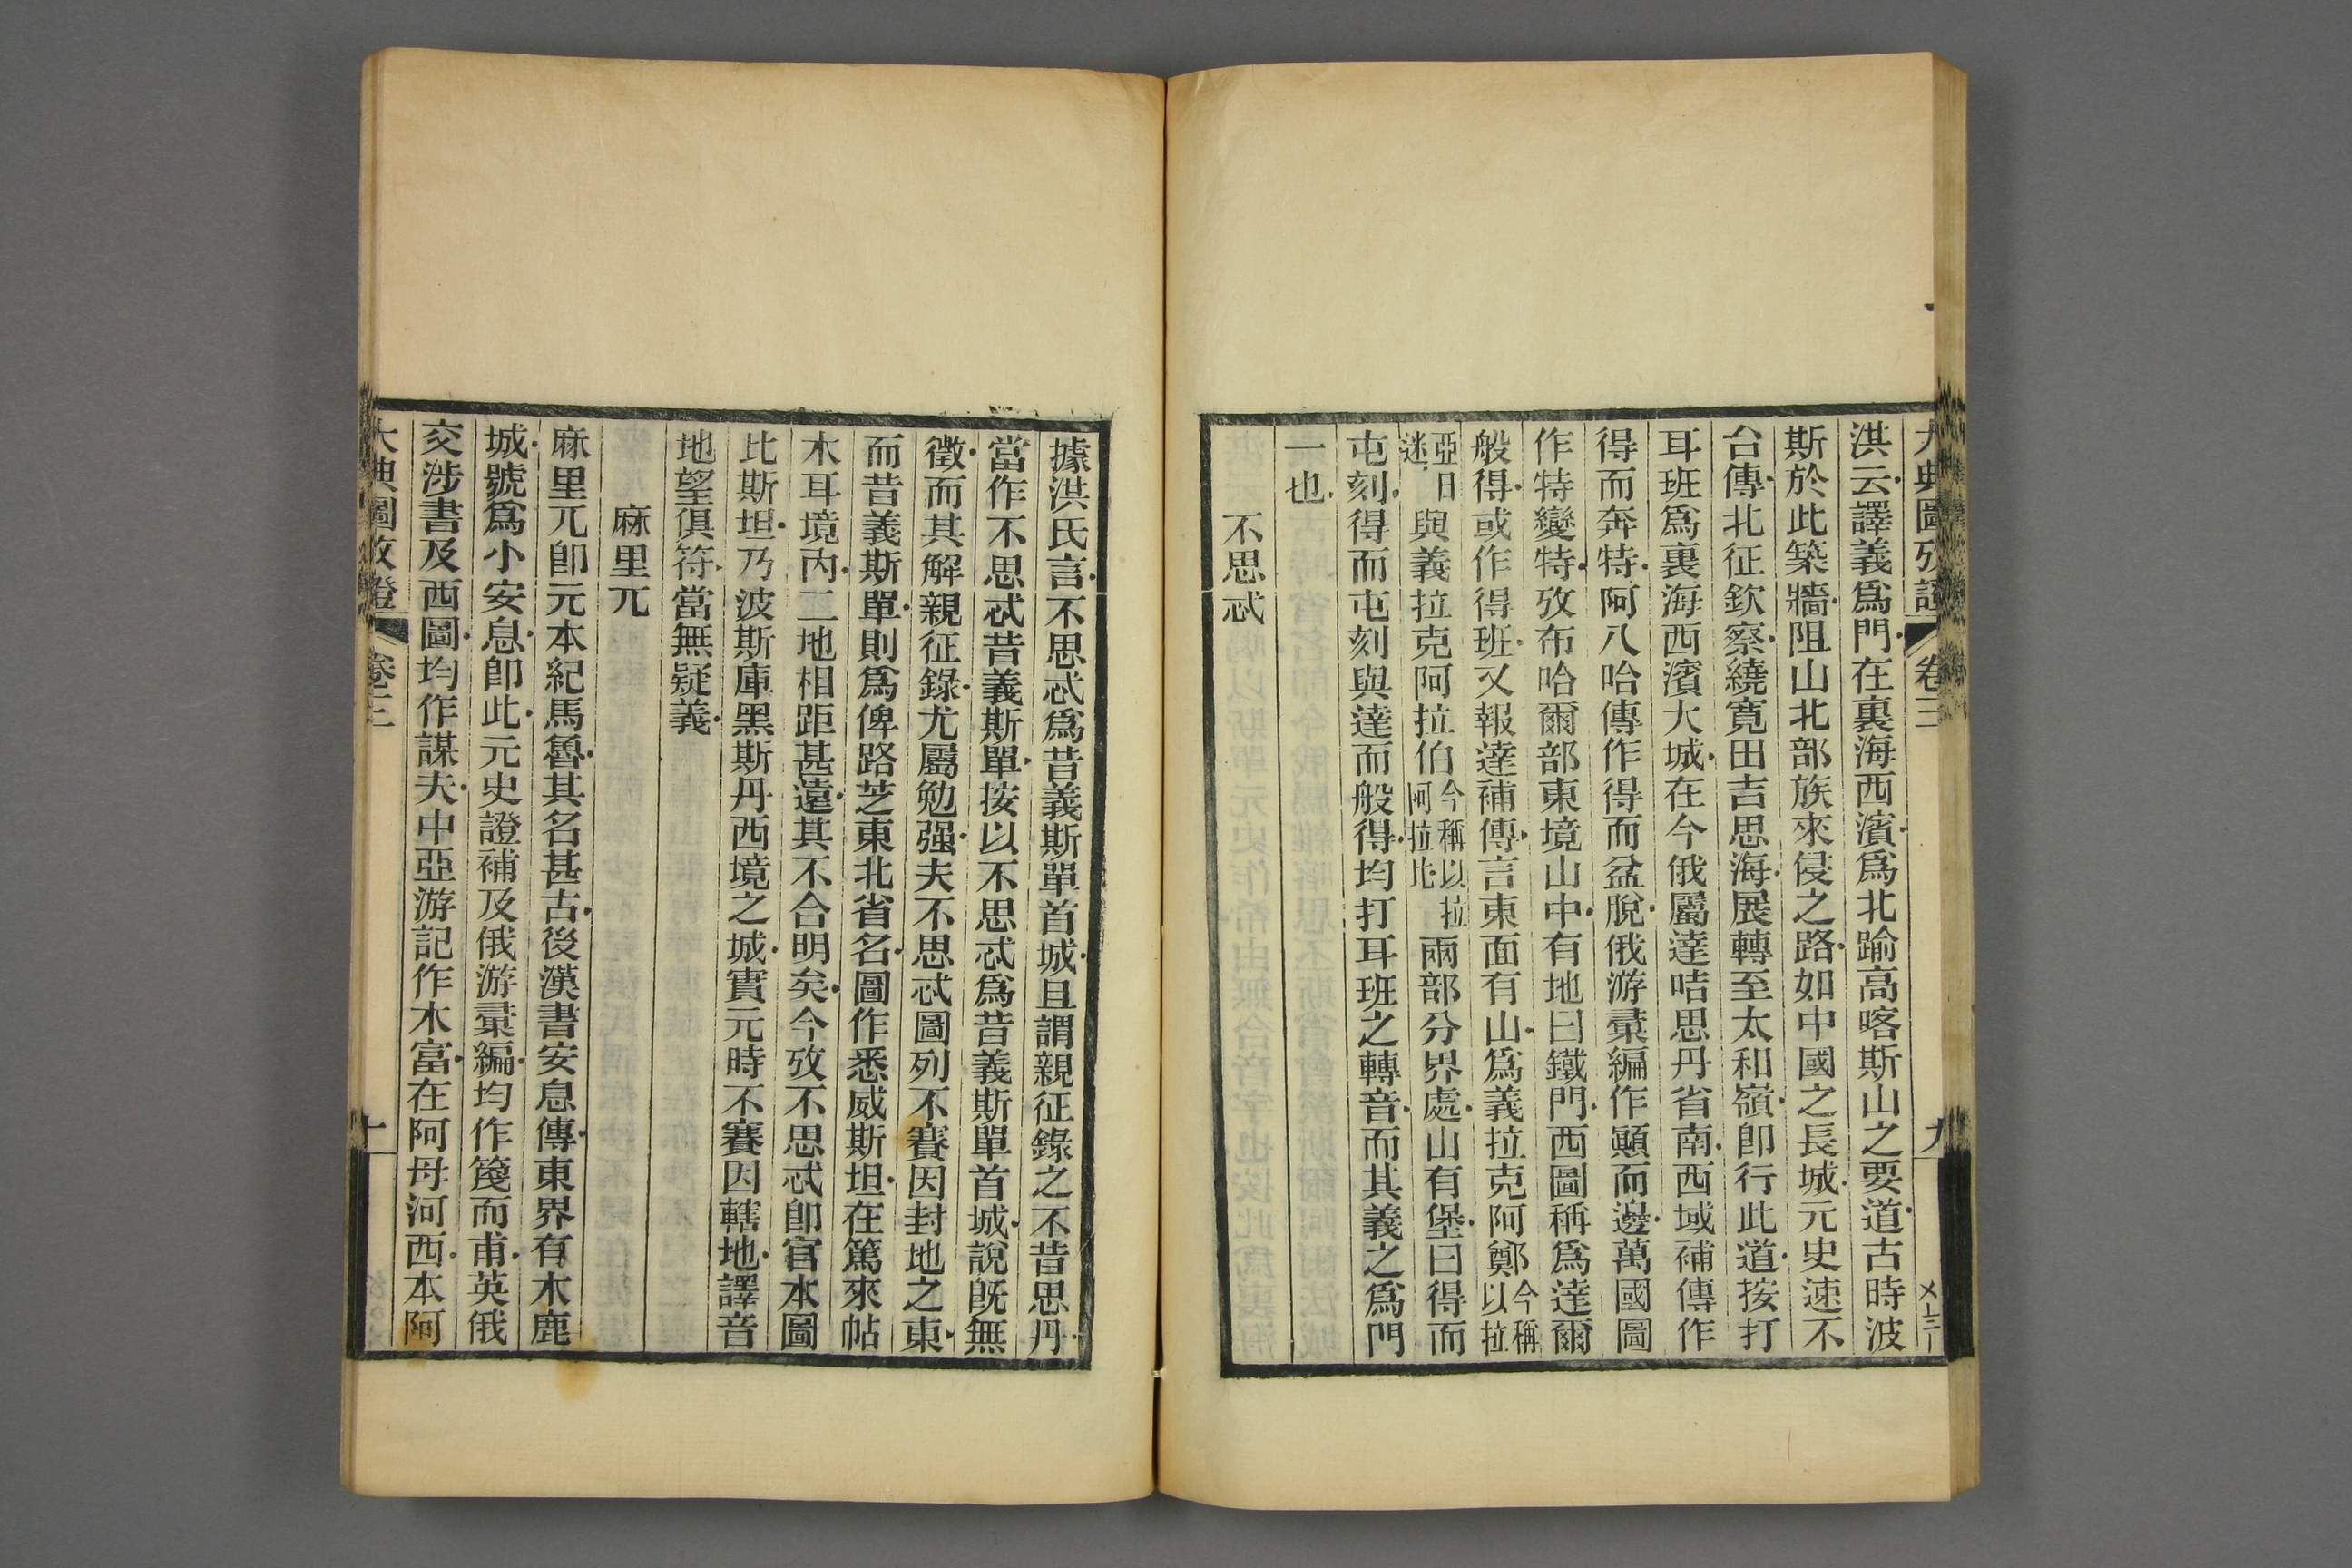 大典圖攷證 卷三 九
洪云譯義爲門在裏海西濱爲北踰高喀斯山之要道古時波
斯於此築牆阻山北部族來侵之路如中國之長城元史速不
台傳北征欽察繞寬田吉思海展轉至太和嶺卽行此道按打
耳班爲裏海西濱大城在今俄屬達咭思丹省南西域補傳作
得而奔特阿八哈傳作得而盆脫俄游彚編作顚而邊萬國圖
作特變特攷布哈爾部東境山中有地曰鐵門西圖稱爲達爾
般得或作得班又報達補傳言東面有山爲義拉克阿鄭今稱以拉
亞日迷與義拉克阿拉伯今稱以拉阿拉比兩部分界處山有堡曰得而
屯刻得而屯刻與達而般得均打耳班之轉音而其義之爲門
一也
不思忒
據洪氏言不思忒爲昔義斯單首城且謂親征錄之不昔思丹
當作不思忒昔義斯單按以不思忒爲昔義斯單首城說旣無
徵而其解親征錄尤屬勉强夫不思忒圖列不賽因封地之東
而昔義斯單則爲俾路芝東北省名圖作悉威斯坦在篤來帖
木耳境內二地相距甚遠其不合明矣今攷不思忒卽官本圖
比斯坦乃波斯庫黑斯丹西境之城實元時不賽因轄地譯音
地望俱符當無疑義
麻里兀
麻里兀卽元本紀馬魯其名甚古後漢書安息傳東界有木鹿
城號爲小安息卽此元史證補及俄游彚編均作篾而甫英俄
交涉書及西圖均作謀夫中亞游記作木富在阿母河西本阿
大典圖攷證 卷三 十